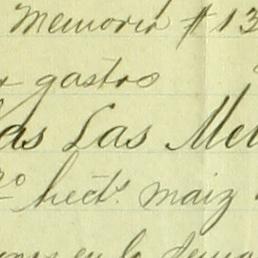 Memoria # 13
gastos
as Las Mel
hects. maiz
en la